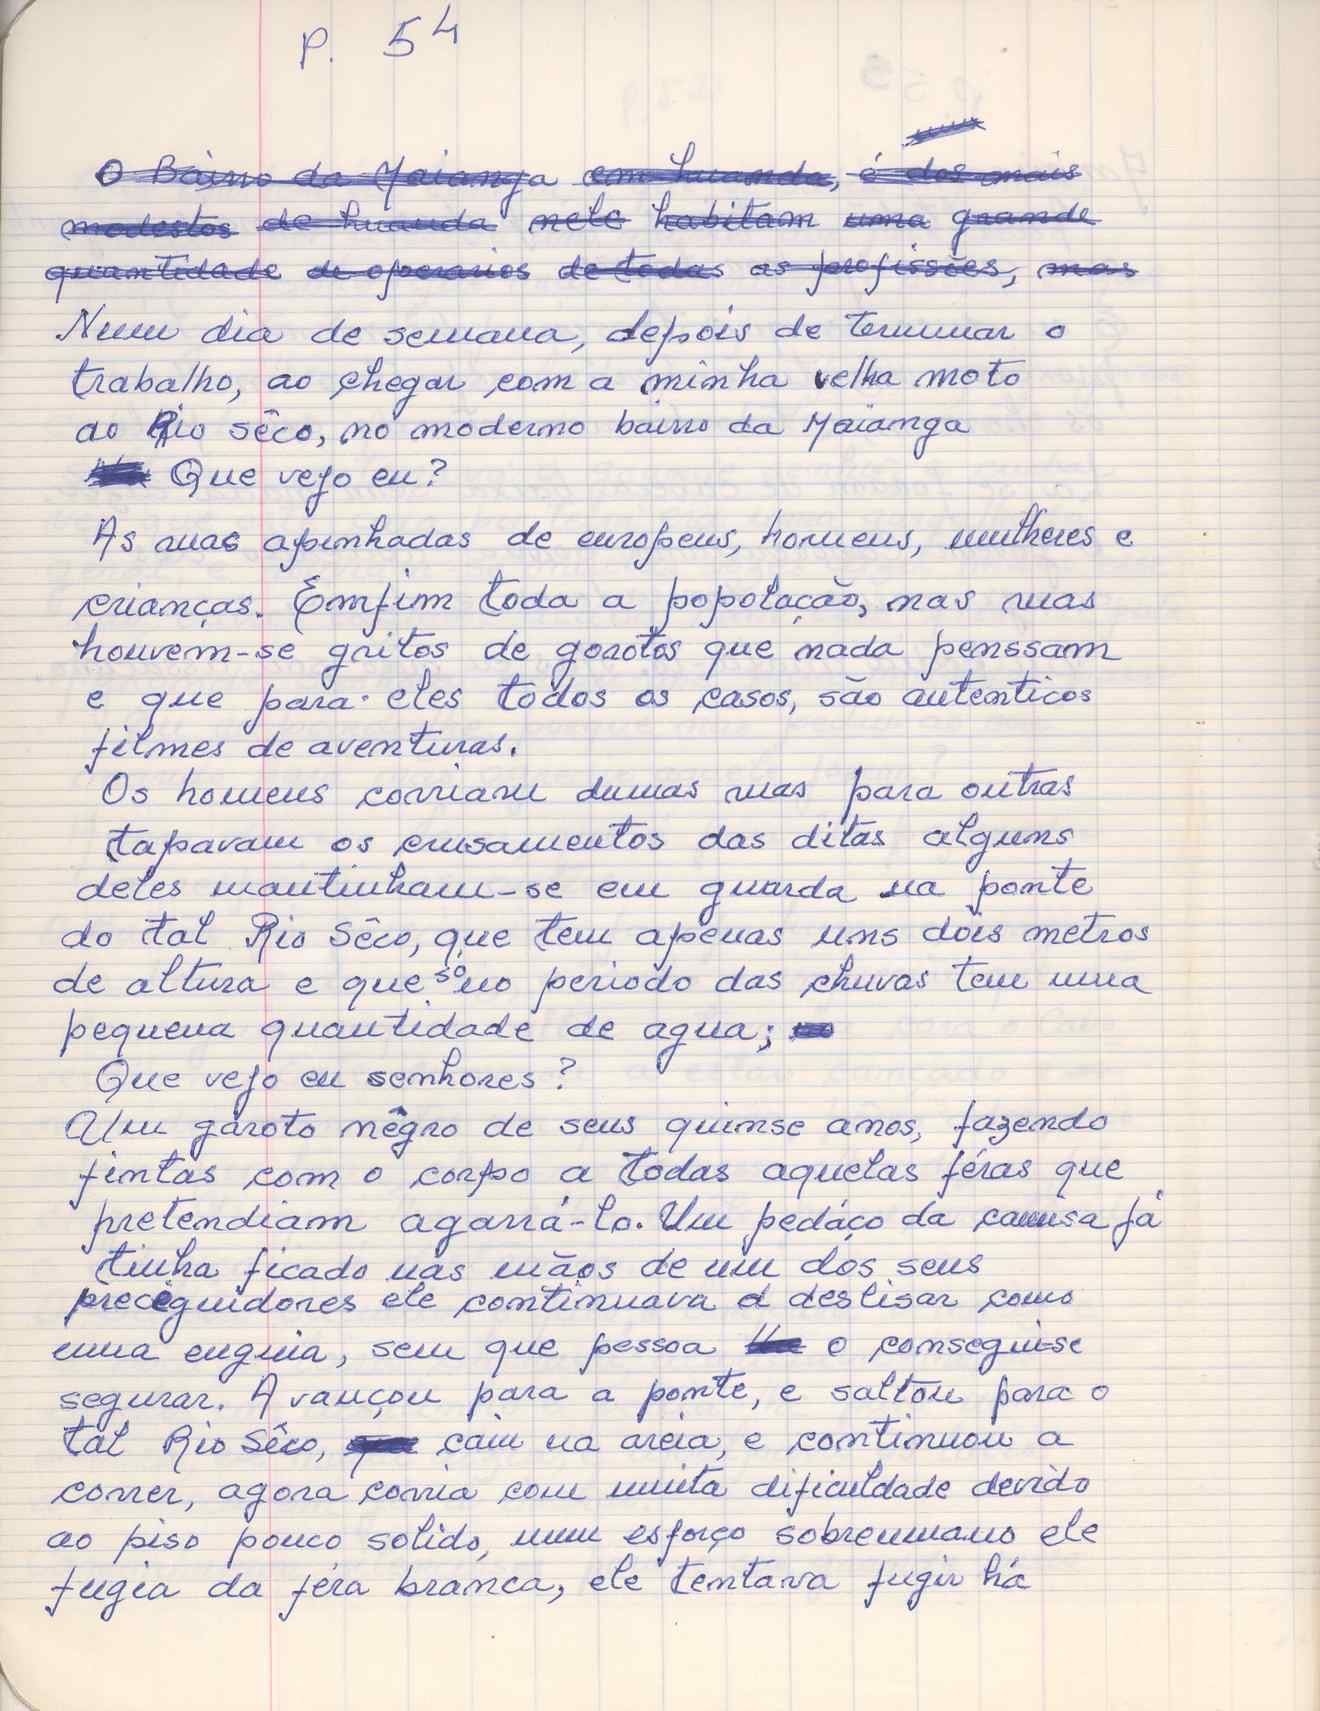 P. 54
O Bairro da Maianga em Luanda, é dos mais
modestos de Luanda nele habitam uma grande
quantidade de operarios de todas as profissões, mas
Num dia de semana, depois de terminar o
trabalho, ao chegar com a minha velha moto
ao Rio Sêco, no moderno bairro da Maianga
Que vejo eu?
As ruas apinhadas de europeus, homens, mulheres e
crianças. Emfim toda a popolação, nas ruas
houvem-se gritos de garotos que nada penssam
e que para eles todos os casos, são autenticos
filmes de aventuras.
Os homens corriam dumas ruas para outras
tapavam os crusamentos das ditas alguns
deles mantinham-se em guarda na ponte
do tal Rio Sêco, que tem apenas uns dois metros
de altura e que só no periodo das chuvas tem uma
pequena quantidade de agua;
Que vejo eu senhores?
Um garoto nêgro de seus quinse anos, fazendo
fintas com o corpo a todas aquelas féras que
pretendiam agarrá-lo. Um pedáço da camisa já
tinha ficado nas mãos de um dos seus
preceguidores ele continuava a deslisar como
uma enguia, sem que pessoa o consegui-se
segurar. Avançou para a ponte, e saltou para o
tal Rio Sêco, caiu na areia, e continuou a
correr, agora corria com muita dificuldade devido
ao piso pouco solido, num esforço sobreumano ele
fugia da féra branca, ele tentava fugir há